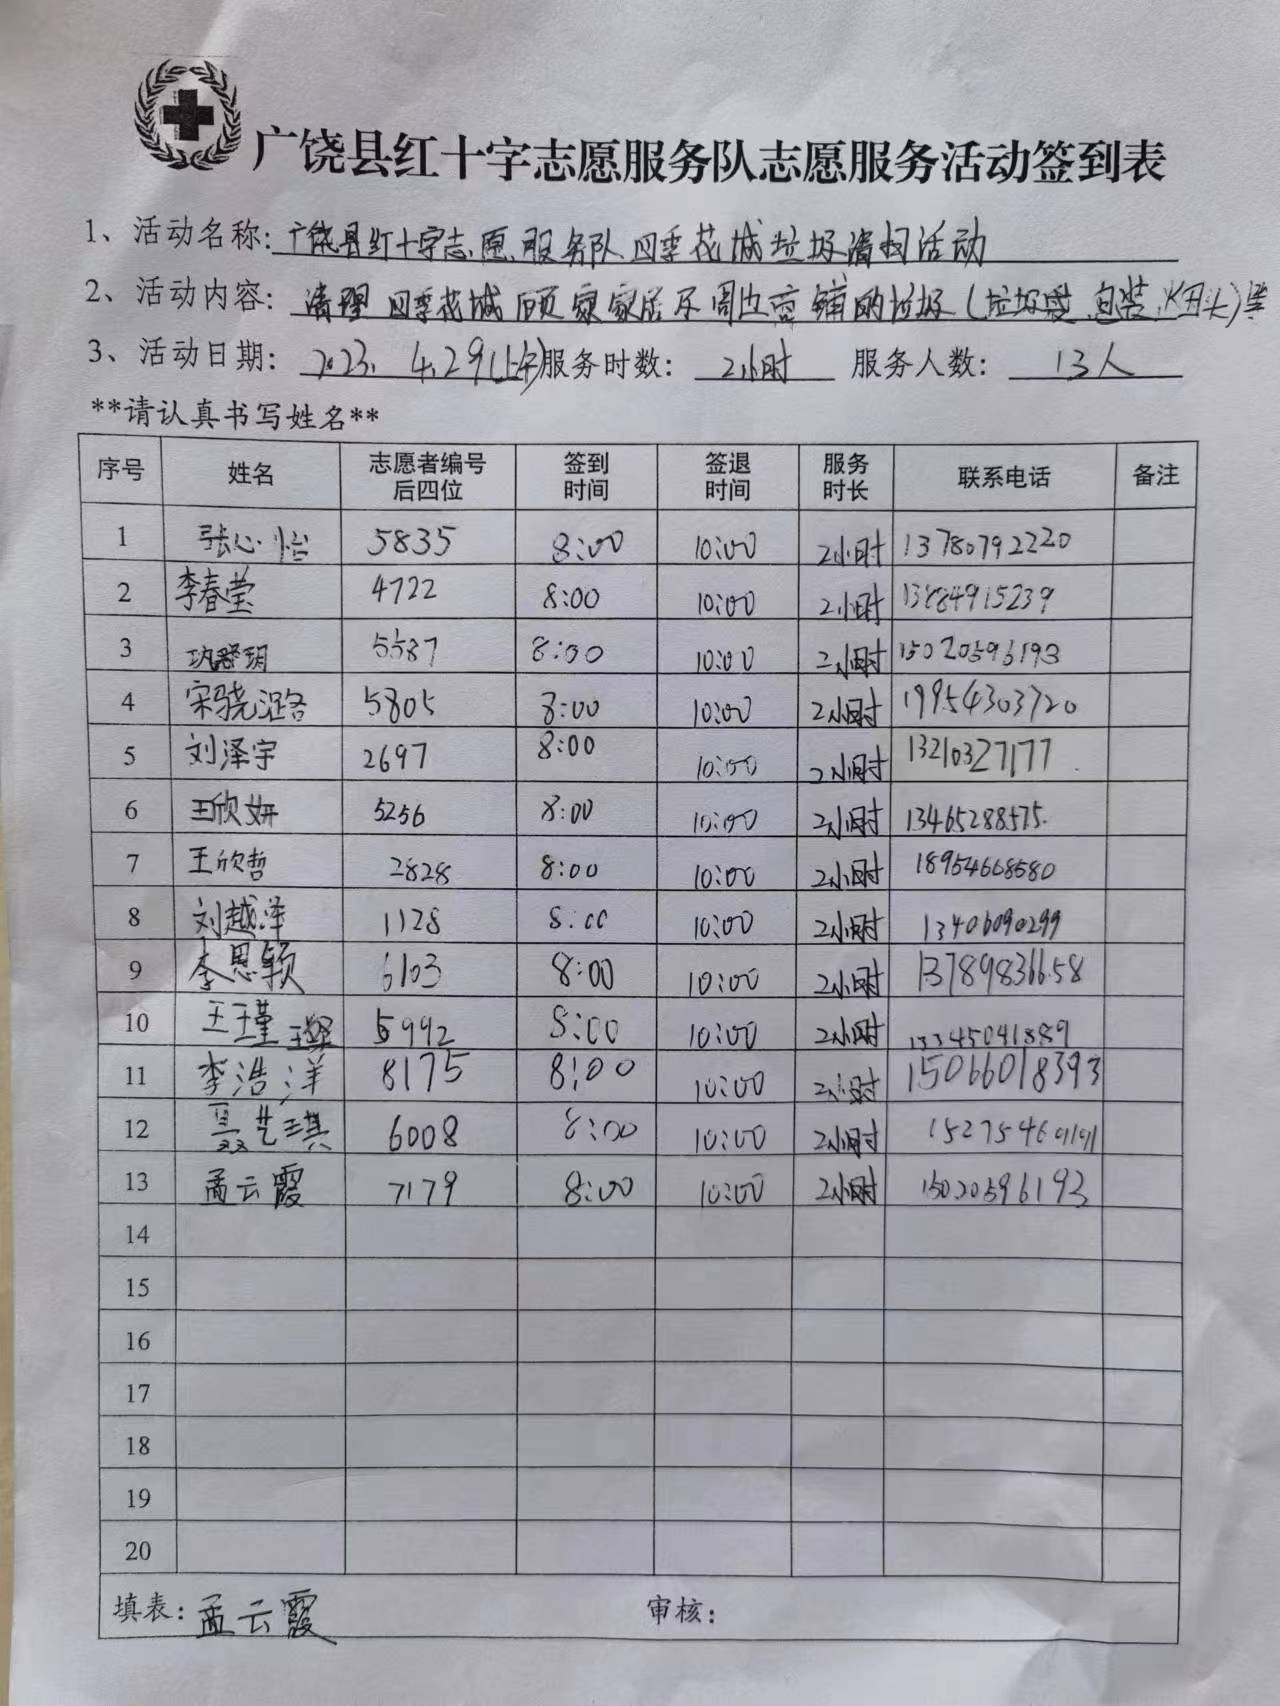 广饶县红十字志愿服务队志愿服务活动签到表
1、活动名称：广饶县红十字志愿服务队四季花城垃圾清扫活动
2、活动内容：清理四季花城顾家家居东周边商铺的垃圾（垃圾袋、包装、烟头）等
3、活动日期：2023.4.29(上午) 服务时数：2小时 服务人数：13人
**请认真书写姓名**
序号 姓名 志愿者编号后四位 签到时间 签退时间 服务时长 联系电话 备注
1 张心怡 5835 8:00 10:00 2小时 13780792220
2 李春莹 4722 8:00 10:00 2小时 13884915239
3 巩舒玥 5587 8:00 10:00 2小时 15020596193
4 宋骁潞 5805 8:00 10:00 2小时 19954303720
5 刘泽宇 2697 8:00 10:00 2小时 13210327177
6 王欣妍 5256 8:00 10:00 2小时 13465288575
7 王欣哲 2828 8:00 10:00 2小时 18954668580
8 刘越洋 1128 8:00 10:00 2小时 13406090299
9 李恩颖 6103 8:00 10:00 2小时 13789836658
10 王瑾 5992 8:00 10:00 2小时 13345041889
11 李浩洋 8175 8:00 10:00 2小时 15066018393
12 聂艺琪 6008 8:00 10:00 2小时
13 孟云霞 7179 8:00 10:00 2小时 15020596193
14
15
16
17
18
19
20
填表：孟云霞 审核：